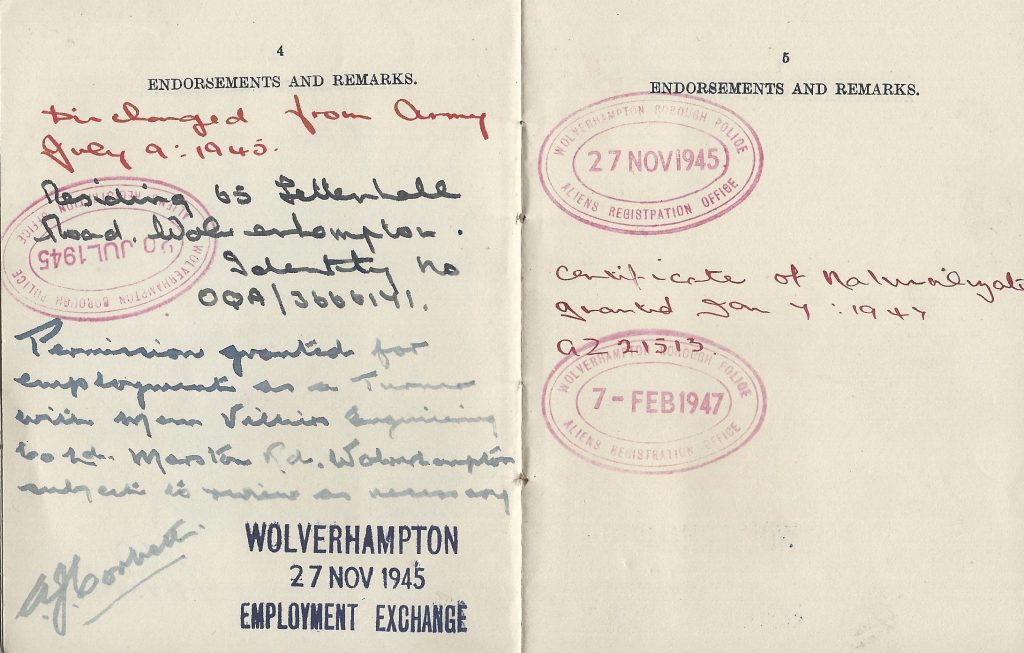 4
ENDORSEMENTS AND REMARKS.
Discharged from Army
July 9 : 1945.
Residing 65 Tettenhall
Road. Wolverhampton.
Identity No
OQA/3666141.
WOLVERHAMPTON BOROUGH POLICE
30 JUL 1945
ALIENS REGISTRATION OFFICE
Permission granted for
employment as a Turner
with Messrs Villiers Engineering
Co Ltd. Marston Rd. Wolverhampton
subject to review as necessary
A.J. Corbett.
WOLVERHAMPTON
27 NOV 1945
EMPLOYMENT EXCHANGE
5
ENDORSEMENTS AND REMARKS.
WOLVERHAMPTON BOROUGH POLICE
27 NOV 1945
ALIENS REGISTRATION OFFICE
Certificate of Naturalizati
granted Jan 7 : 1947
AZ 21513.
WOLVERHAMPTON BOROUGH POLICE
7 - FEB 1947
ALIENS REGISTRATION OFFICE